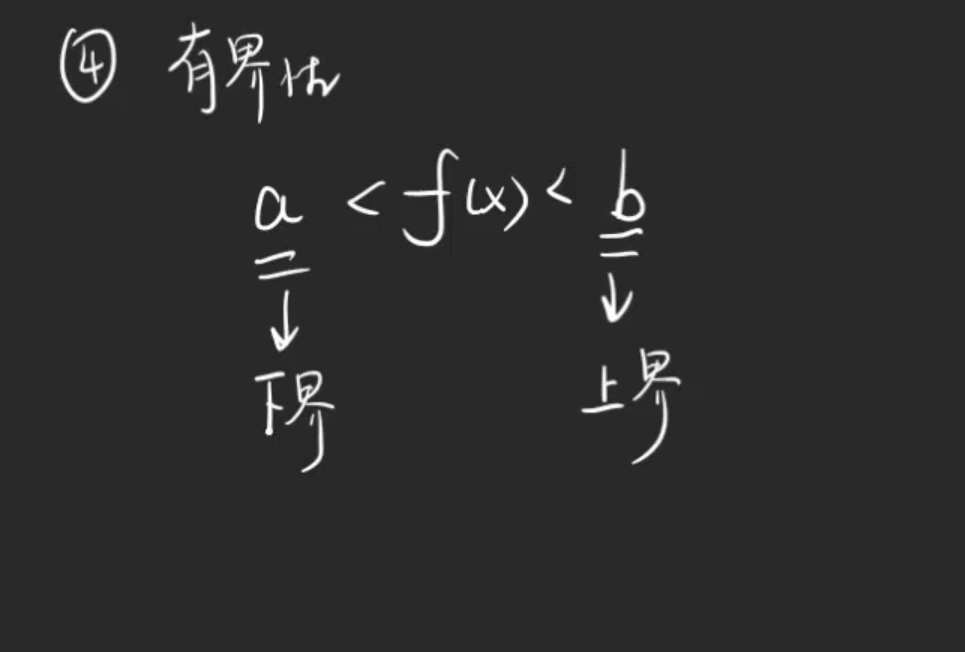 ④ 有界性
a < f(x) < b
↓ ↓
下界 上界